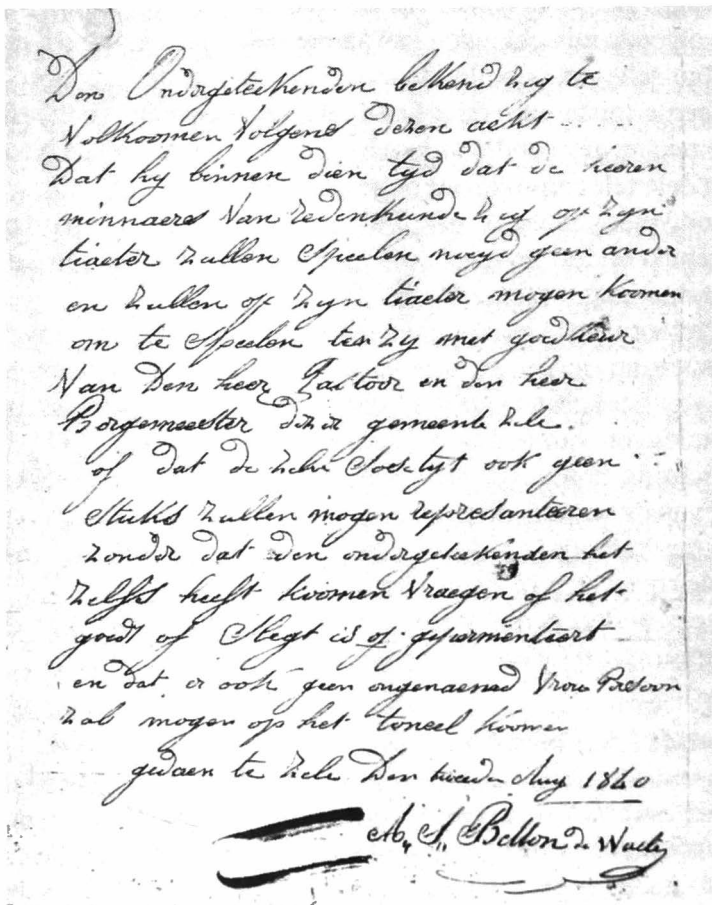 Den Ondergeteekenden bekend zig te
Volkoomen Volgens dezen aekt
Dat hy binnen dien tyd dat de heeren
minnaers Van redenkunde zig op zyn
tiaeter zullen Speelen noeyd geen ander
en zullen op zyn tiaeter mogen koomen
om te Speelen ten zy met goedkeur
Van Den heer Pastoor en den heer
Borgemeester dezer gemeente Zele.
of dat de zelve Socetyt ook geen
Stuks zullen mogen represanteeren
zonder dat den ondergeteekenden het
zelfs heeft koomen Vraegen of het
goedt of Slegt is of gepermenteert
en dat er ook geen ongenaemd Vrou Persoon
zal mogen op het toneel koomen
gedaen te Zele Den tweeden 1840
A,, S,, Bellon de